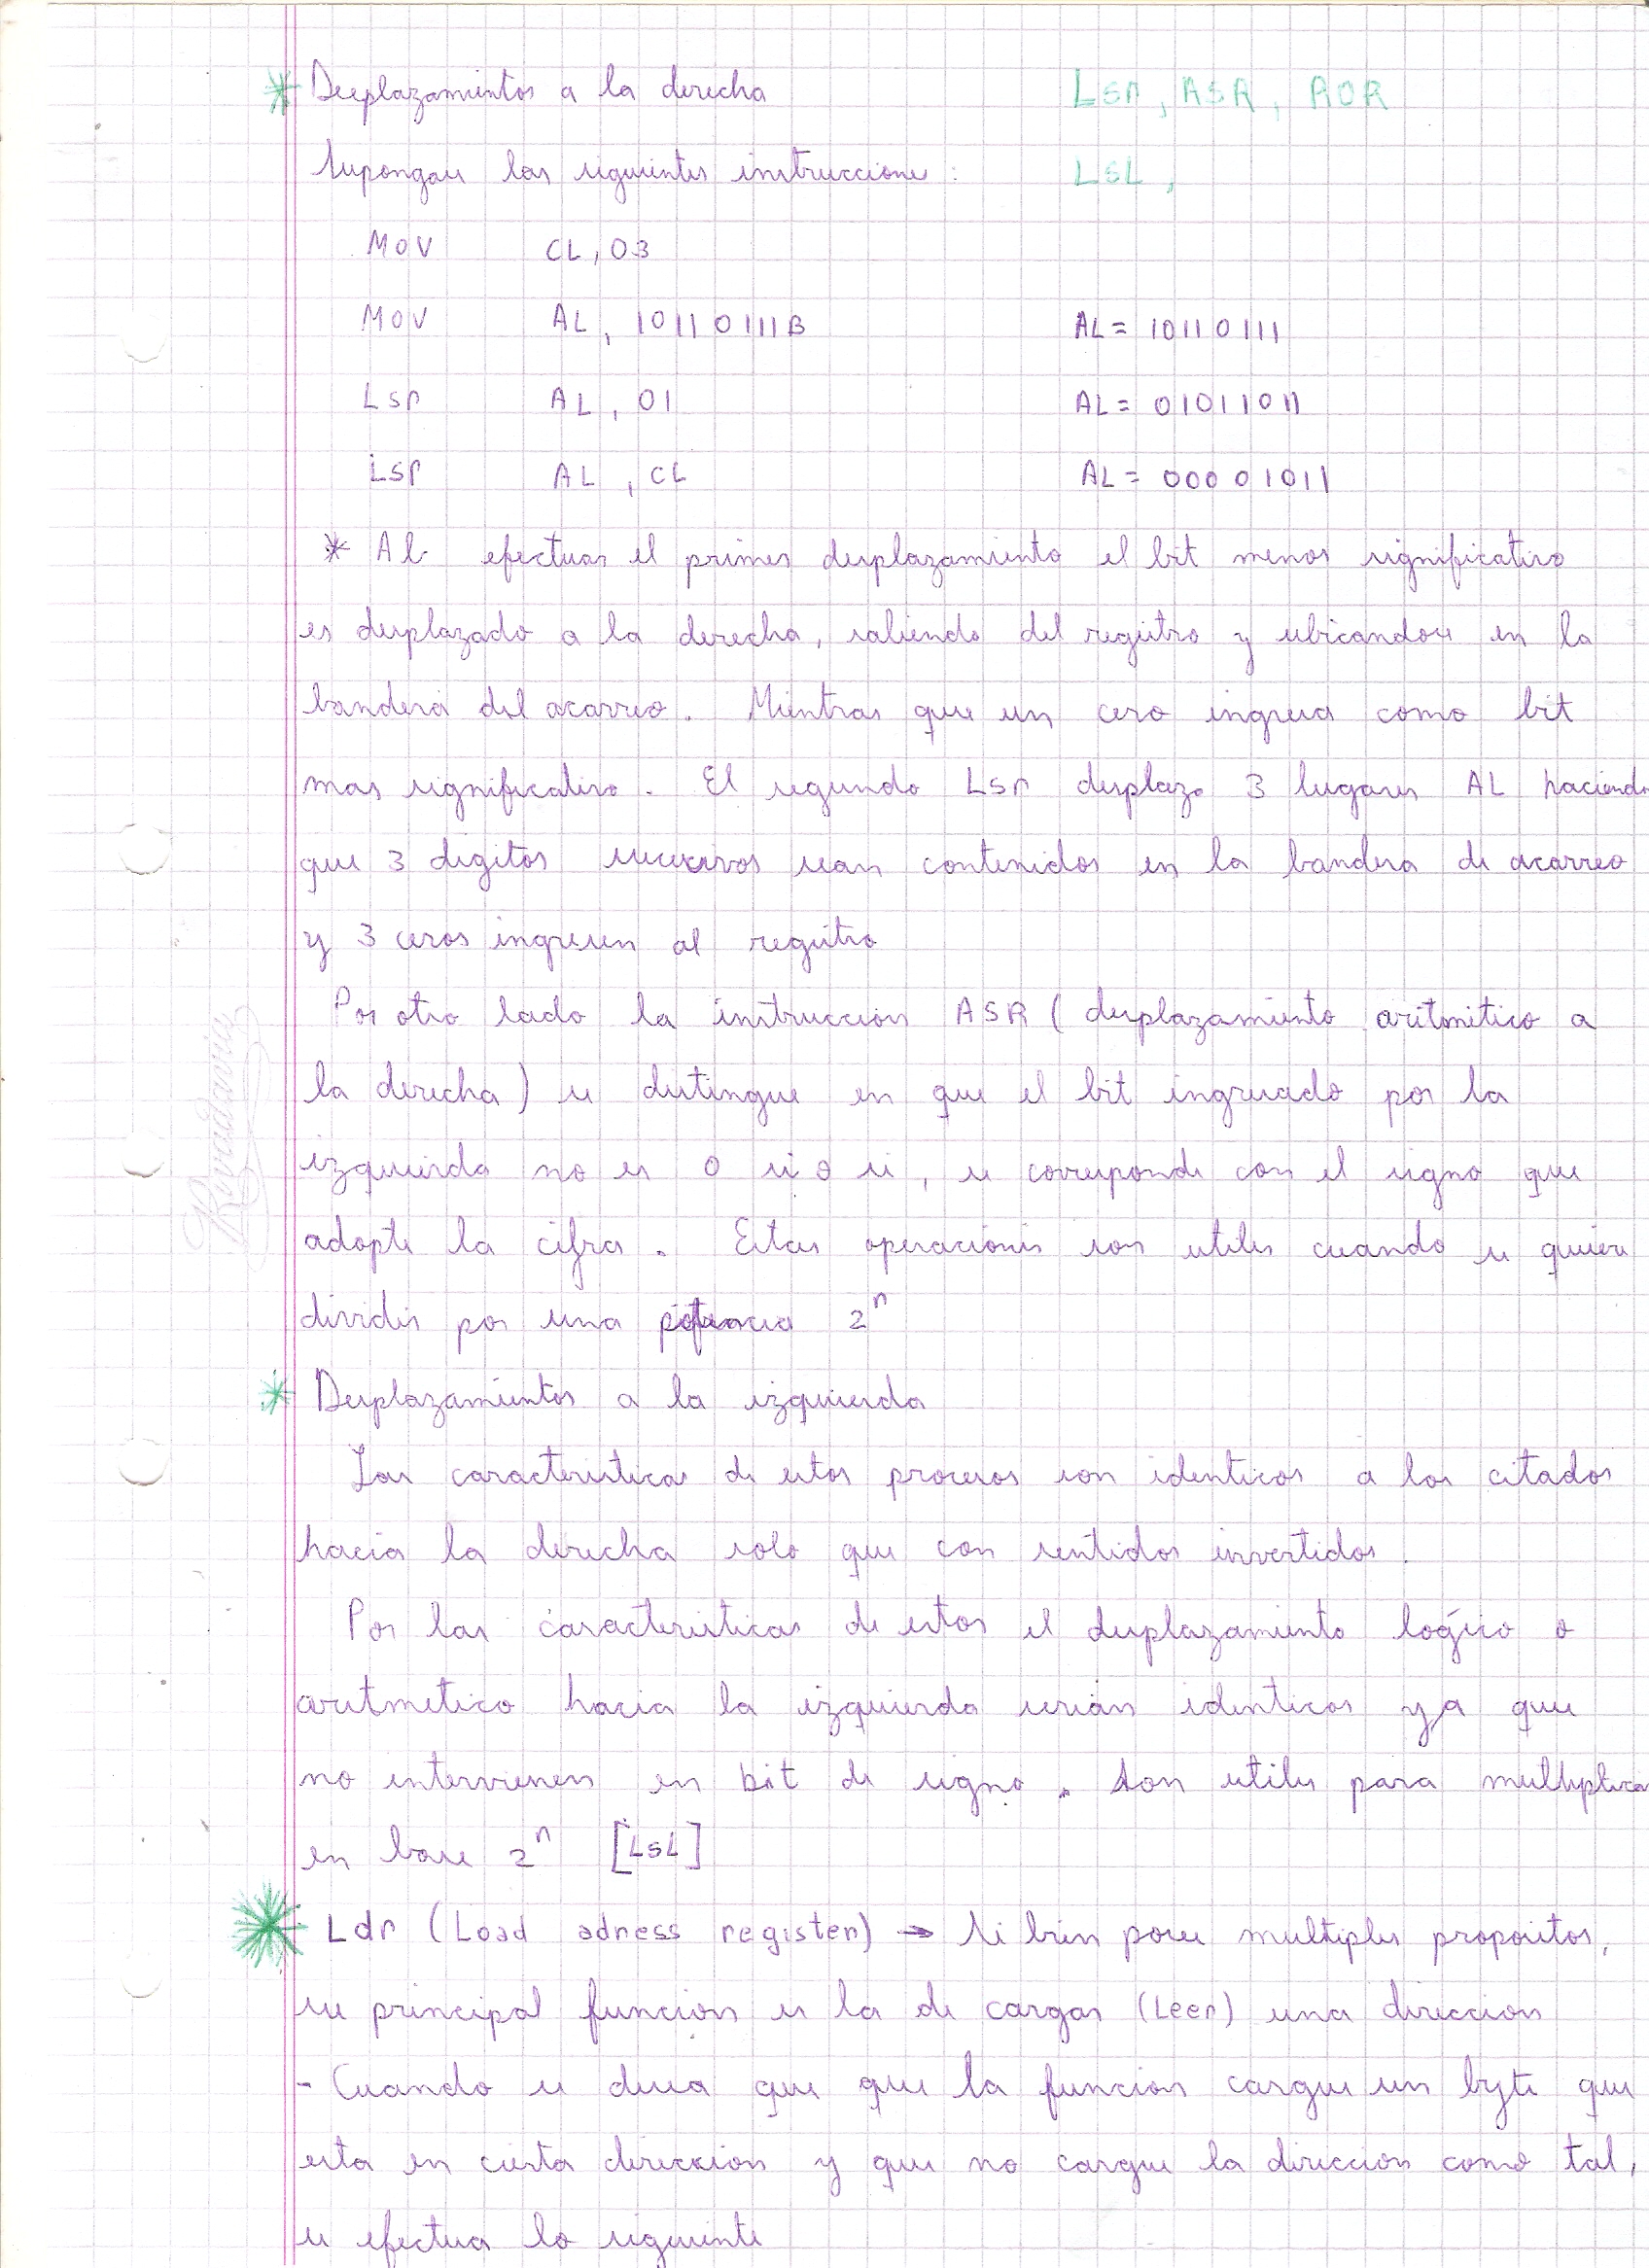 * Desplazamientos a la derecha LSR, ASR, ROR
Supongase las siguientes instrucciones: LSL,
MOV CL, 03
MOV AL, 10110111B AL= 10110111
LSR AL, 01 AL= 01011011
LSR AL, CL AL= 00001011
* Al efectuar el primer desplazamiento el bit menos significativo
es desplazado a la derecha, saliendo del registro y ubicandose en la
bandera del acarreo. Mientras que un cero ingresa como bit
mas significativo. El segundo LSR desplaza 3 lugares AL haciendo
que 3 digitos sucesivos sean contenidos en la bandera de acarreo
y 3 ceros ingresen al registro
Por otro lado la instruccion ASR (desplazamiento aritmético a
la derecha) se distingue en que el bit ingresado por la
izquierda no es 0 si o si, se corresponde con el signo que
adopte la cifra. Estas operaciones son utiles cuando se quiere
dividir por una potencia 2ⁿ
* Desplazamientos a la izquierda
Las caracteristicas de estos procesos son identicos a los citados
hacia la derecha solo que con sentidos invertidos.
Por las caracteristicas de estos el desplazamiento logico o
aritmetico hacia la izquierda serían identicos ya que
no intervienen en bit de signo. Son utiles para multiplicar
en base 2ⁿ [LSL]
* Ldr (Load adress register) → Si bien posee multiples propositos,
su principal funcion es la de cargar (Leer) una direccion
- Cuando se desea que que la funcion cargue un byte que
esta en cierta direccion y que no cargue la direccion como tal,
se efectua lo siguiente
Rivadavia